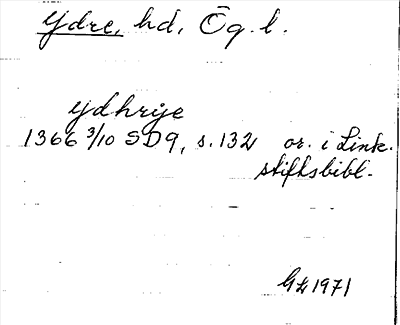 Ydre, hd, Ög. l.
ydhrije
1366 3/10 SD9, s. 132 or. i Link.
stiftsbibl.
1971